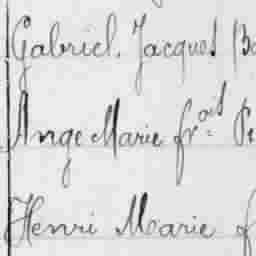 Gabriel. Jacques
Ange Marie frçois
Henri Marie